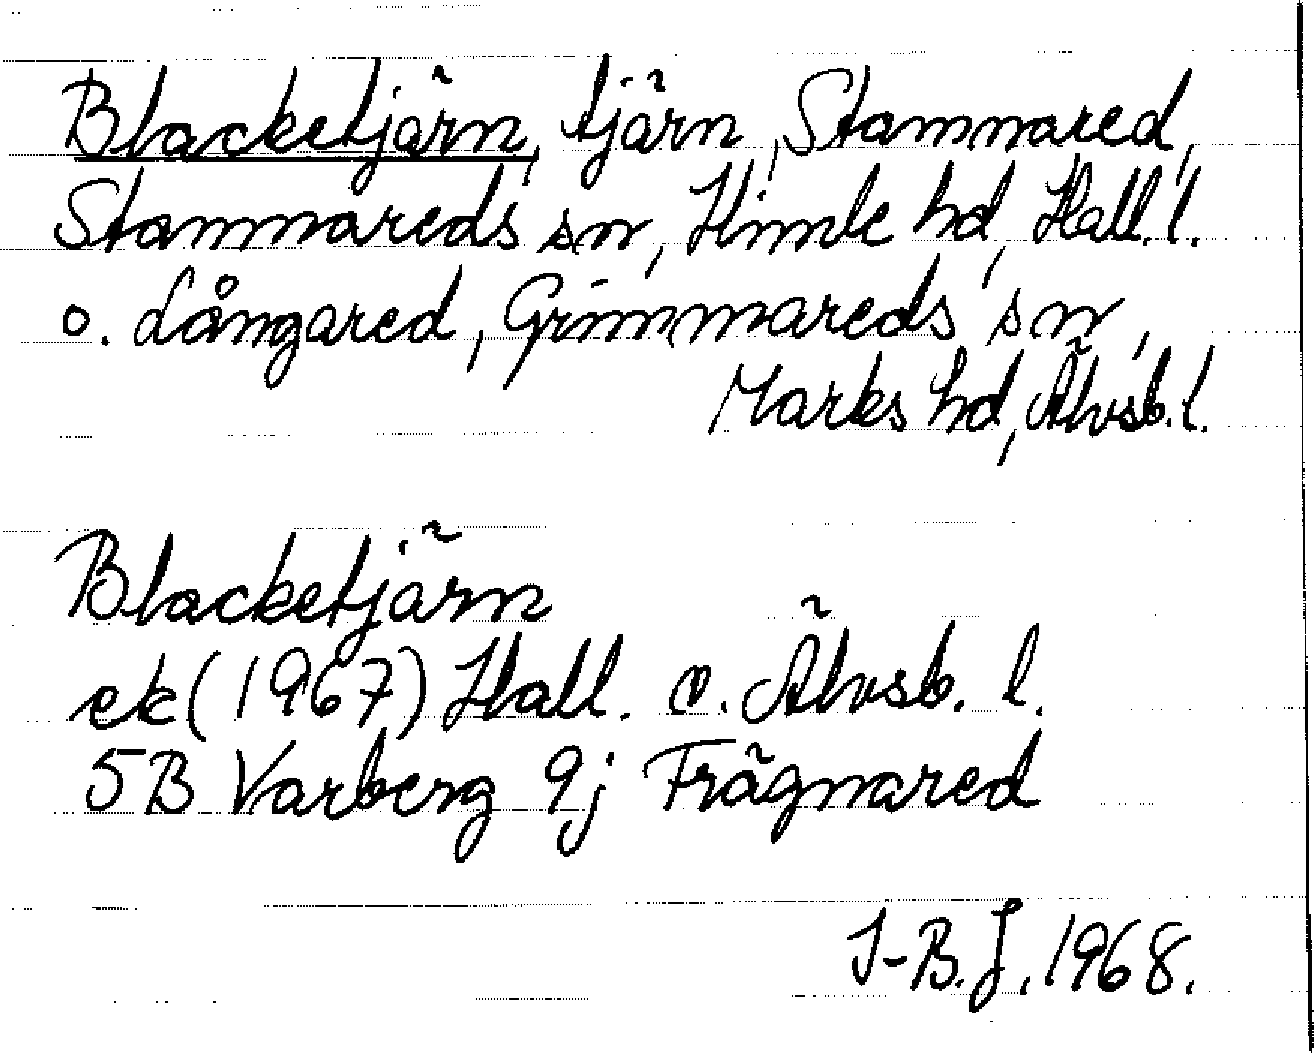 Blacketjärn, tjärn, Stamnared,
Stamnareds sn, Himle hd, Hall. l.
o. Långared, Grimmareds sn,
Marks hd, Älvsb. l.
Blacketjärn
ek (1967) Hall. o. Älvsb. l.
5B Varberg 9j Frägnared
I-B. J. 1968.